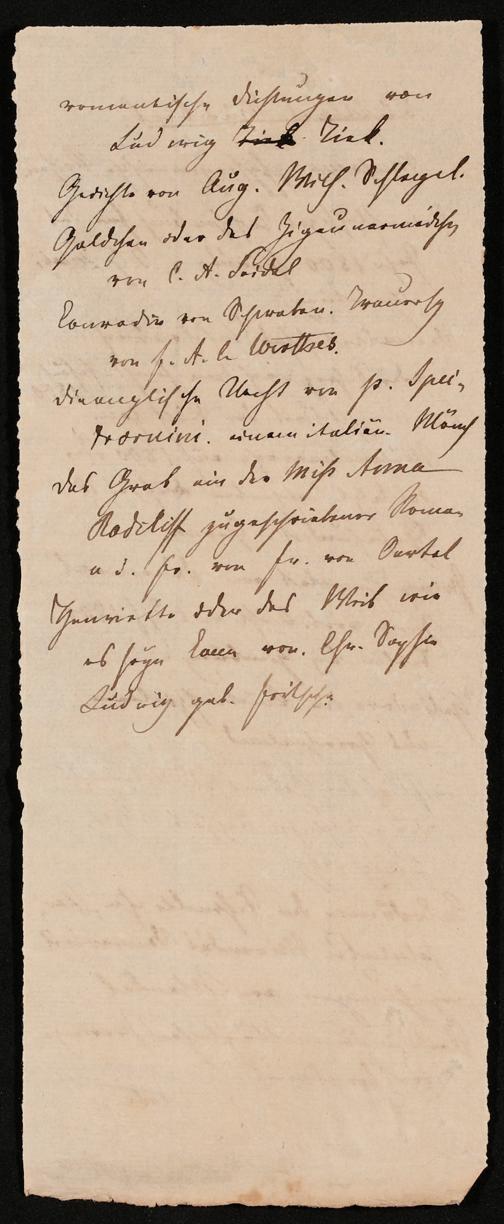 romantische Dichtungen von
Ludwig Tiek. Tiek.
Gedichte von Aug. Wilh. Schlegel.
Goldchen oder das Zigeunermädchen
von C. A. Seidel
Konradin von Schwaben. Trauersp
von F. A. C. Werthes.
die englische Nacht von P. Spei-
dronini. einem italiän. Mönch
das Grab ein der Miß Anna
Radcliff zugeschriebener Roman
a d. fr. von Fr. von Oertel
Henriette oder das Weib wie
es seyn kann von Chr. Sophie
Ludwig geb. Fritsche